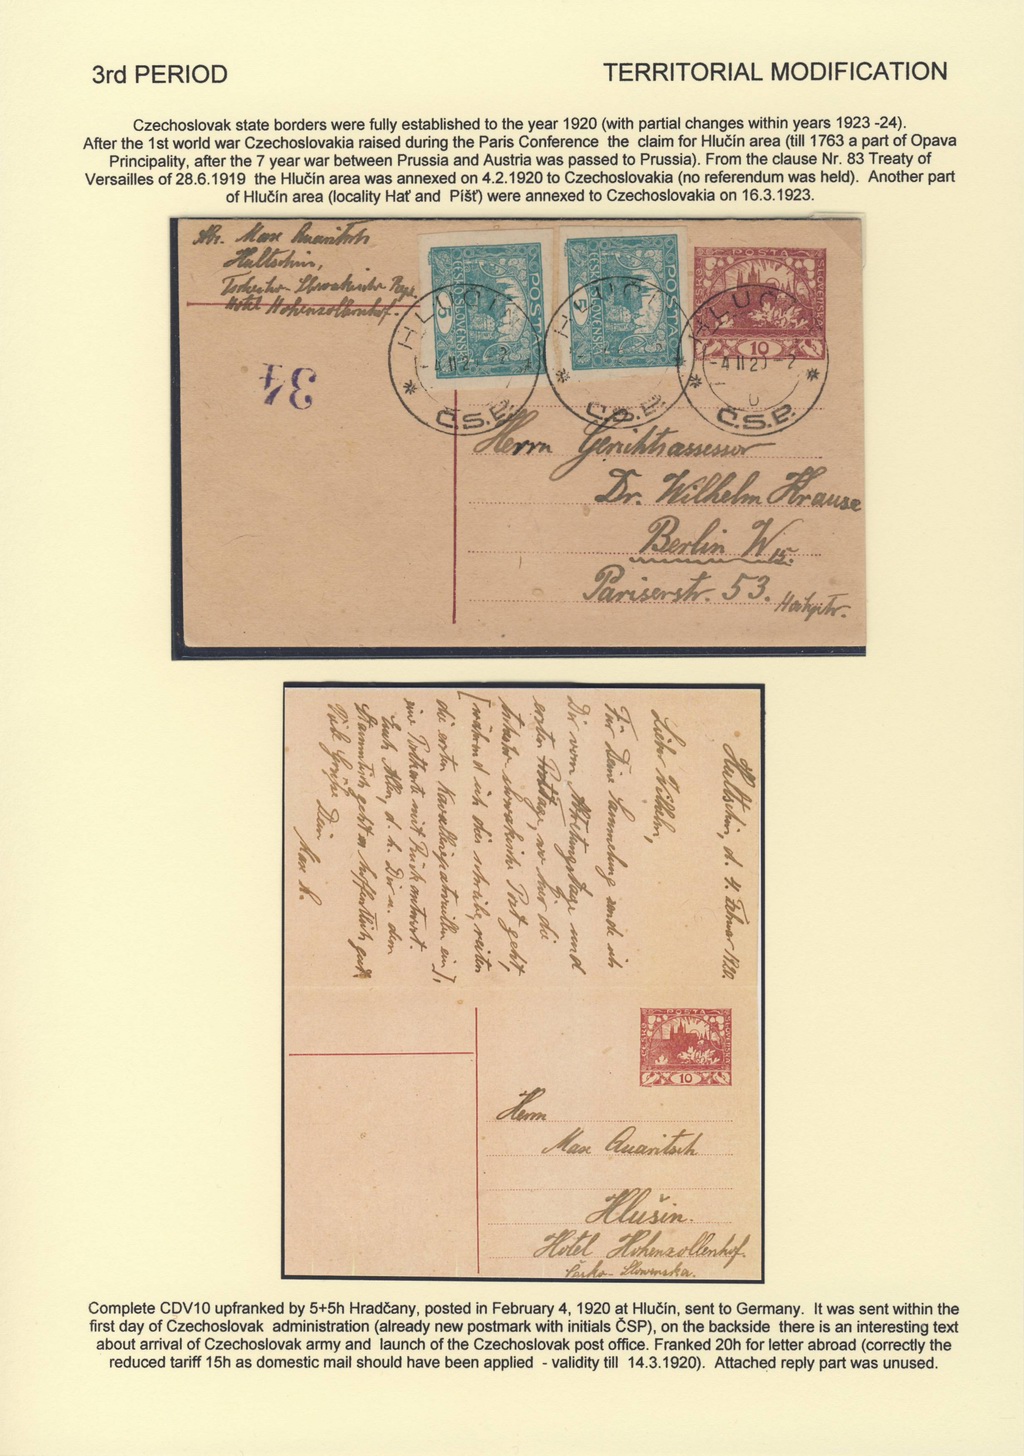 3rd PERIOD
TERRITORIAL MODIFICATION
Czechoslovak state borders were fully established to the year 1920 (with partial changes within years 1923 -24).
After the 1st world war Czechoslovakia raised during the Paris Conference the claim for Hlučín area (till 1763 a part of Opava
Principality, after the 7 year war between Prussia and Austria was passed to Prussia). From the clause Nr. 83 Treaty of
Versailles of 28.6.1919 the Hlučín area was annexed on 4.2.1920 to Czechoslovakia (no referendum was held). Another part
of Hlučín area (locality Hať and Píšť) were annexed to Czechoslovakia on 16.3.1923.
Max Quaritsch
Hultschin,
Tschecho-Slowakische Rep.
Hotel Hohenzollernhof.
34
POSTA
ČESKO-SLOVENSKÁ
5
POSTA
ČESKO-SLOVENSKÁ
5
POSTA
ČESKO SLOVENSKÁ
10
HLUČÍN
-4 II 20 -2
Č.S.P.
HLUČÍN
Č.S.P.
HLUČÍN
-4 II 20 -2
Č.S.P.
Herrn Gerichtsassessor
Dr. Wilhelm Krause
Berlin W 15.
Pariserstr. 53.
Hultschin, d. 4. Februar 1920.
Lieber Wilhelm,
Für Deine Sammlung sende ich
Dir vom Abtretungstage und
ersten Posttage, wo hier die
tschecho-slowakische Post geht,
[während ich dies schreibe, reiten
die ersten Kavalleriepatrouillen ein],
eine Postkarte mit Rückantwort.
Euch Allen, d. h. Dir u. dem
Stammtisch geht es hoffentlich gut.
Viele Grüße Dein
Max Q.
POSTA
ČESKO SLOVENSKÁ
10
Herrn
Max Quaritsch
Hlušín.
Hotel Hohenzollernhof.
Česko-Slowenska.
Complete CDV10 upfranked by 5+5h Hradčany, posted in February 4, 1920 at Hlučín, sent to Germany. It was sent within the
first day of Czechoslovak administration (already new postmark with initials ČSP), on the backside there is an interesting text
about arrival of Czechoslovak army and launch of the Czechoslovak post office. Franked 20h for letter abroad (correctly the
reduced tariff 15h as domestic mail should have been applied - validity till 14.3.1920). Attached reply part was unused.